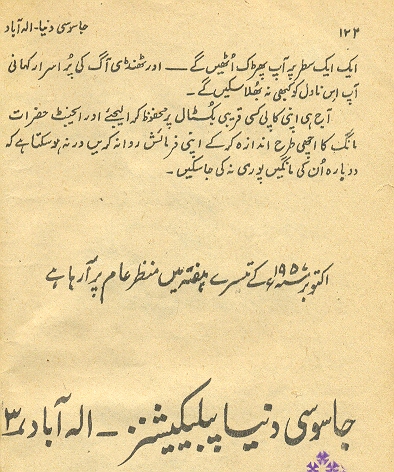 ۱۲۴ جاسوسی دنیا-الہ آباد
ایک ایک سطر پر آپ پھڑک اُٹھیں گے — اور ٹھنڈی آگ کی پُر اسرار کہانی
آپ اِس ناول کو کبھی نہ بھُلا سکیں گے۔
آج ہی اپنی کاپی کسی قریبی بکسٹال پر محفوظ کرا لیجئے اور ایجنٹ حضرات
مانگ کا اچھی طرح اندازہ کر کے اپنی فرمائش روانہ کریں ورنہ ہو سکتا ہے کہ
دوبارہ اُن کی مانگیں پوری نہ کی جا سکیں۔
اکتوبر ۱۹۵۷ء کے تیسرے ہفتہ میں منظر عام پر آ رہا ہے
جاسوسی دنیا پبلیکیشنز - الہ آباد ۳